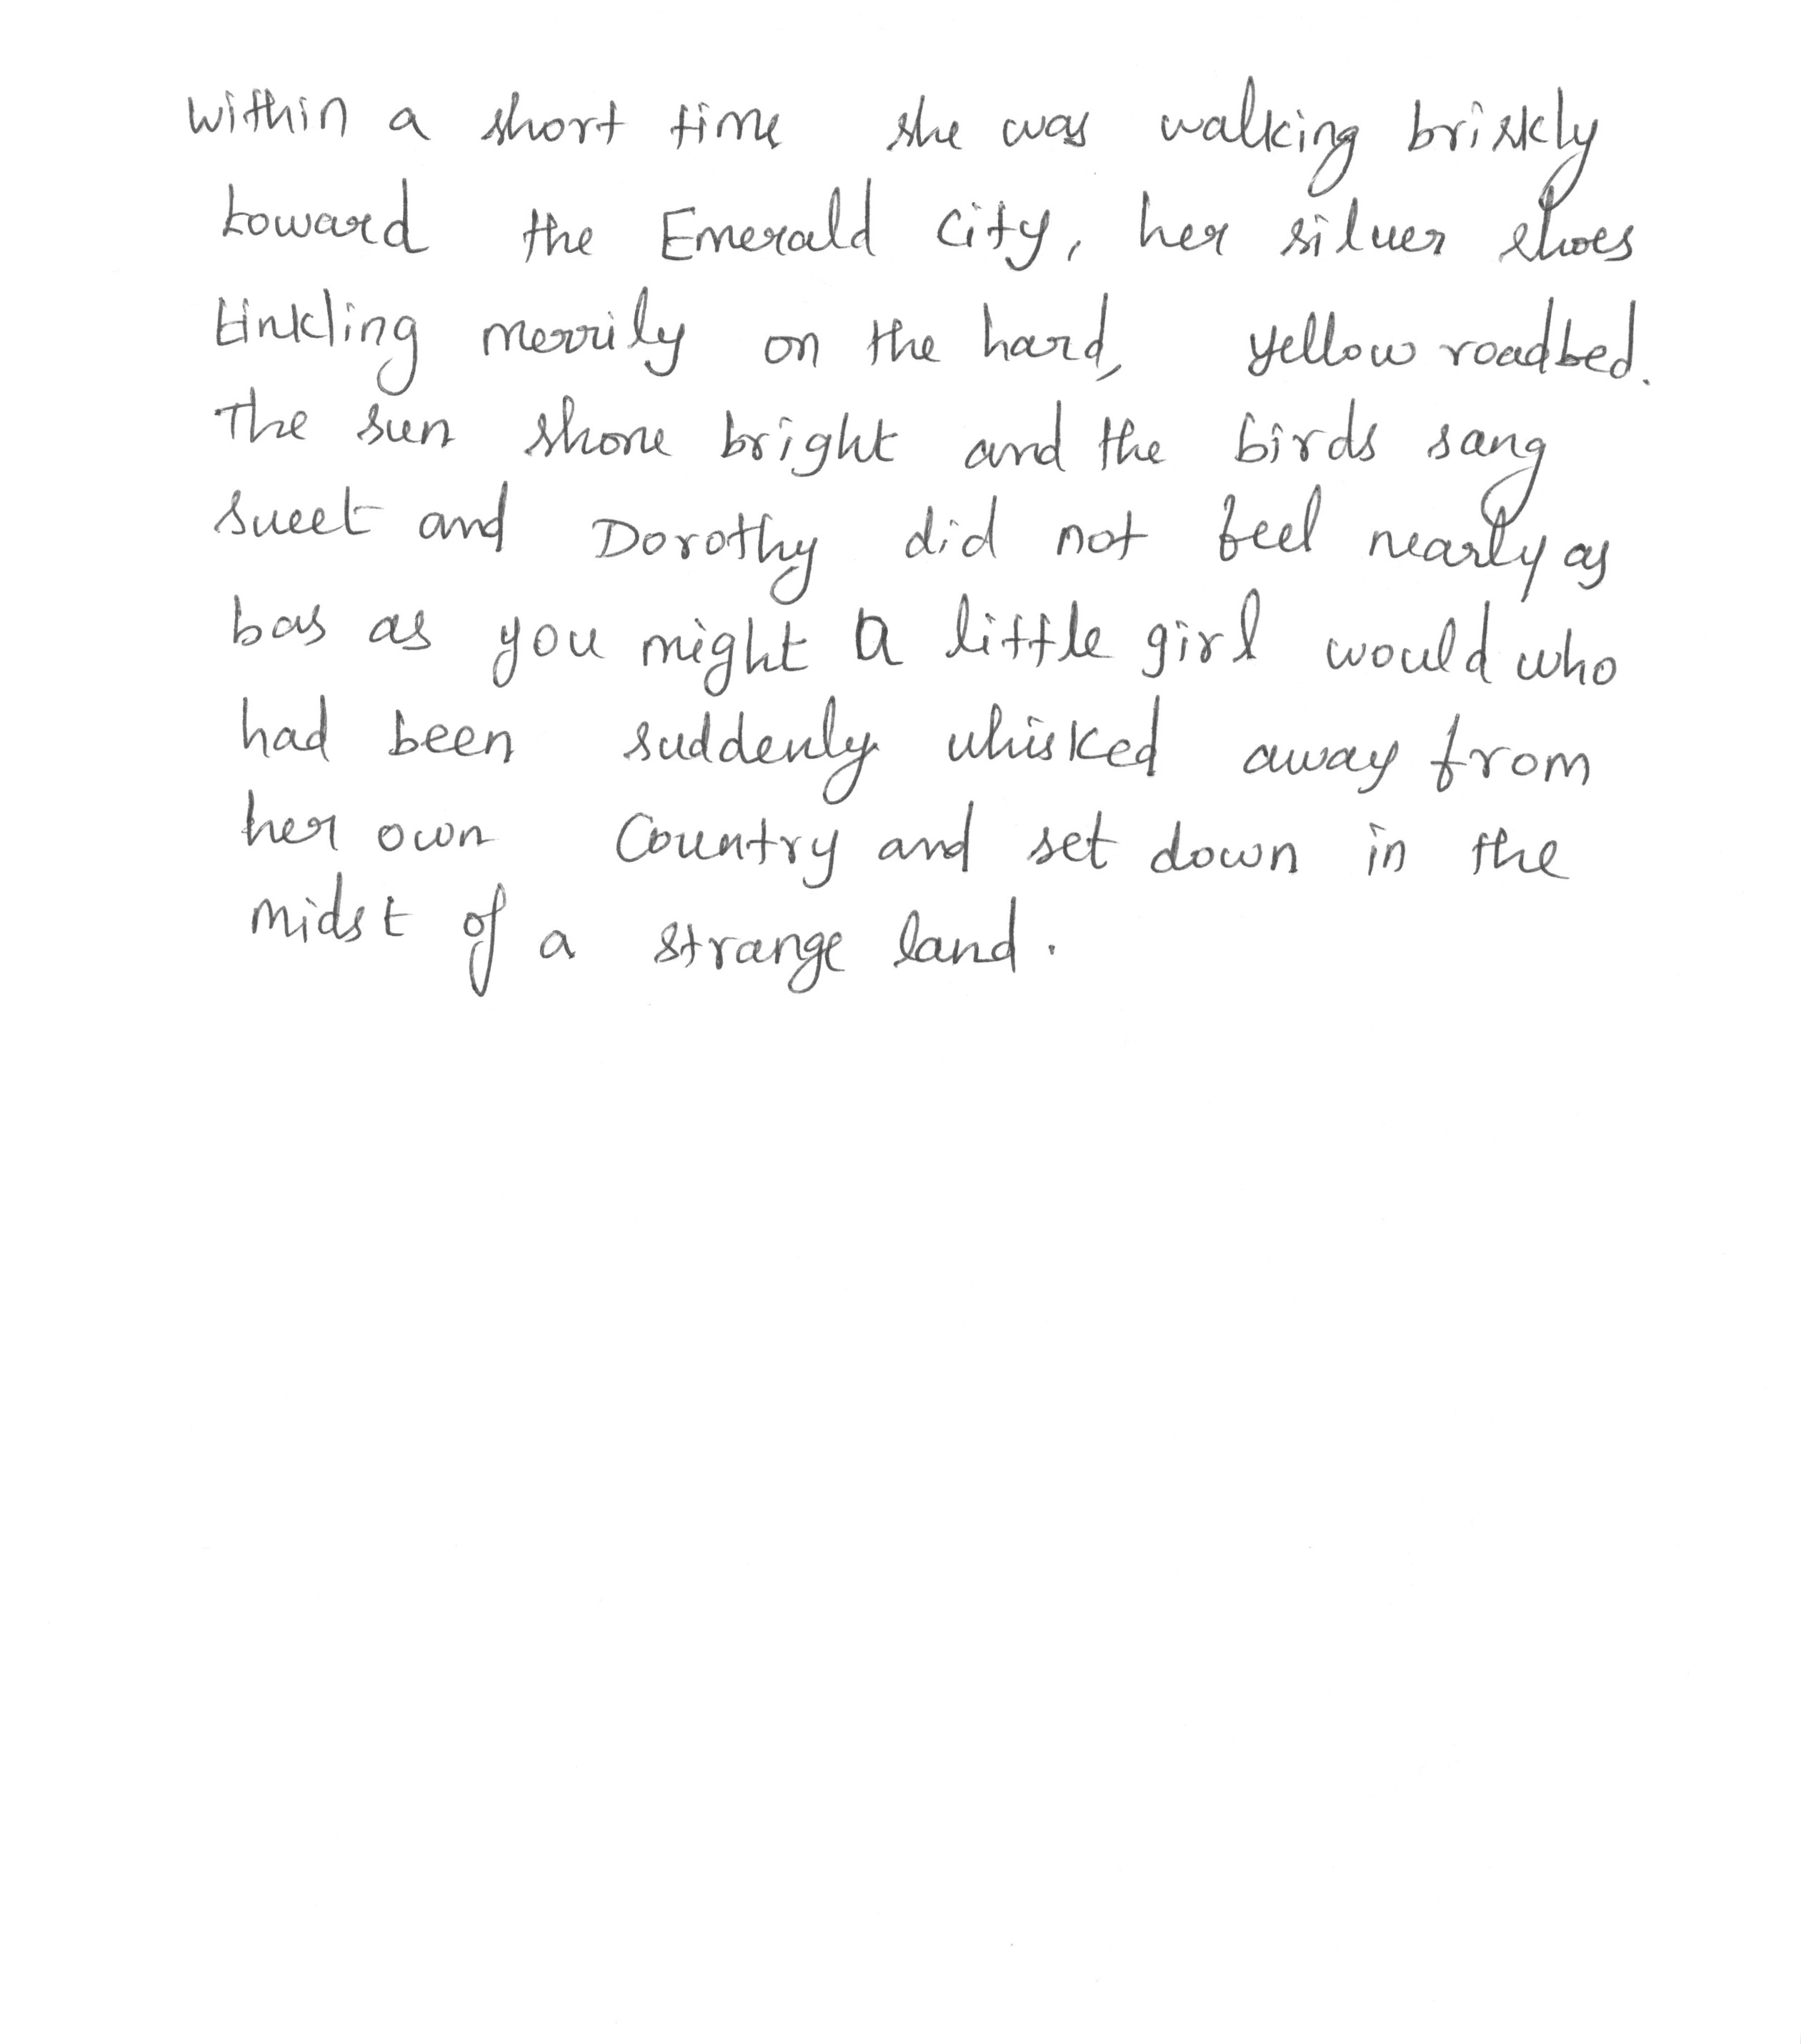 Within a short time she was walking briskly
toward the Emerald City, her silver shoes
tinkling merrily on the hard, yellow roadbed.
The sun shone bright and the birds sang
sweet and Dorothy did not feel nearly as
bas as you might a little girl would who
had been suddenly whisked away from
her own Country and set down in the
midst of a strange land.